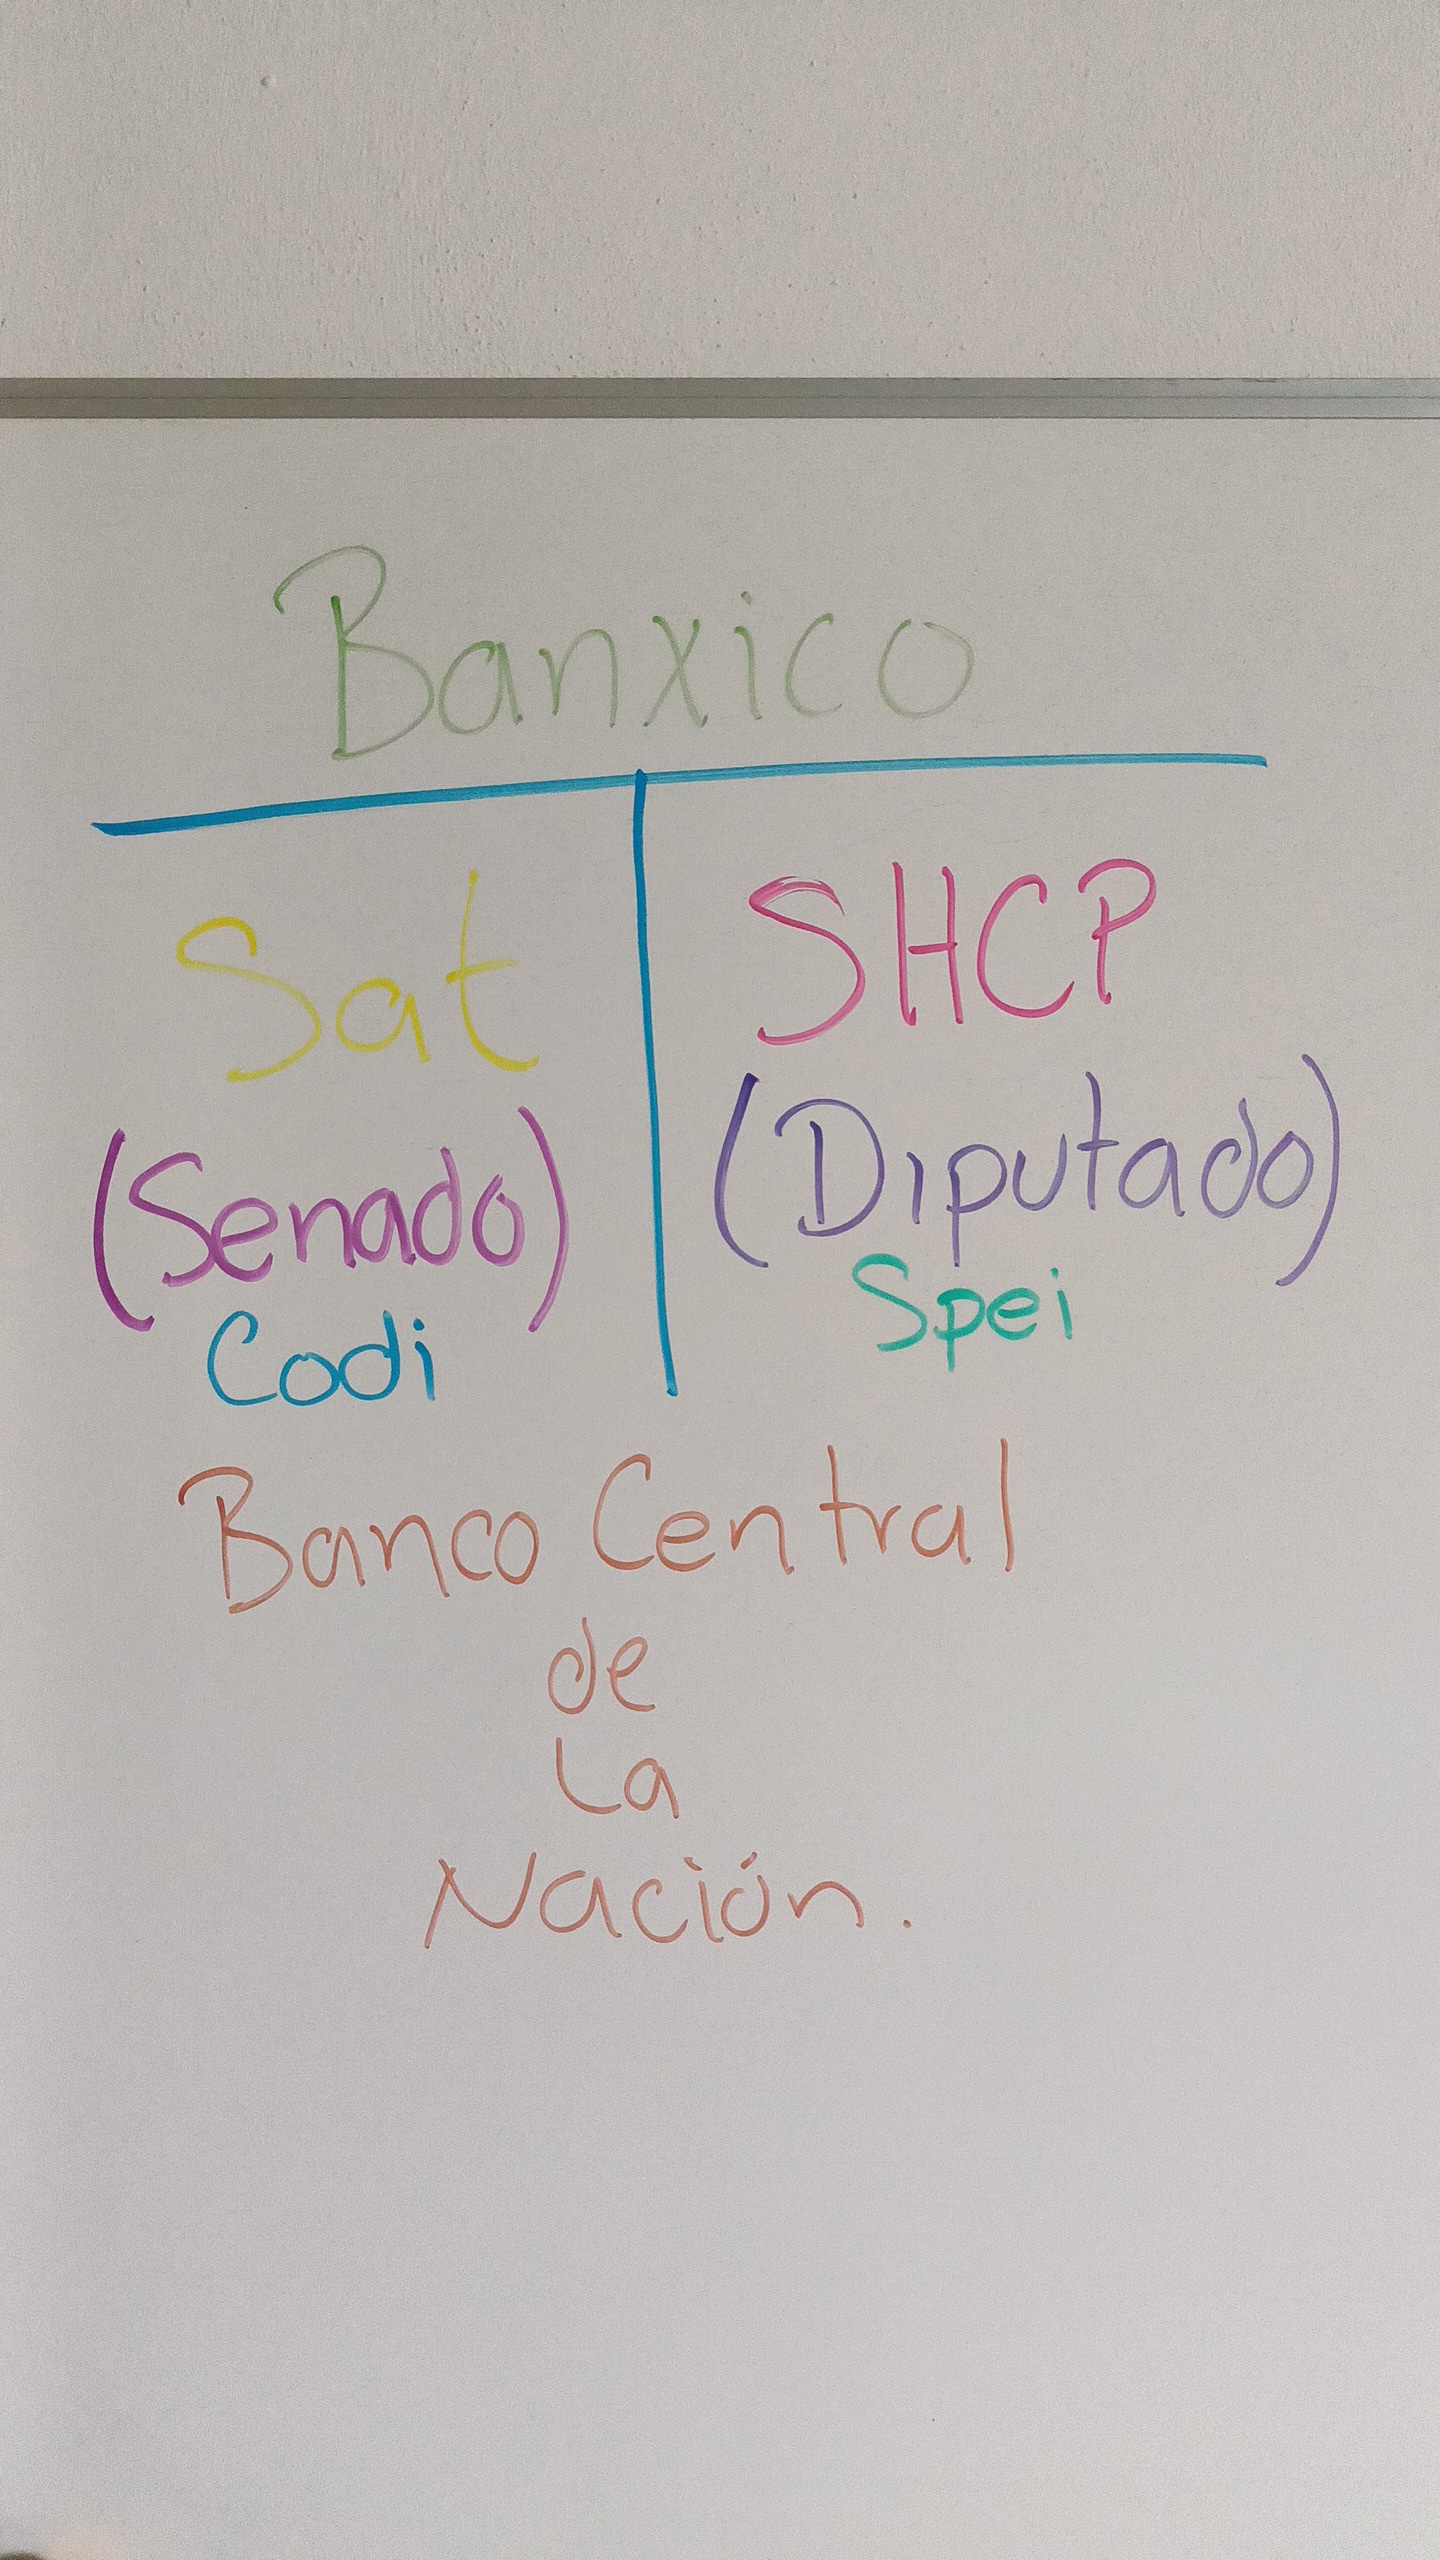 Banxico
Sat
(Senado)
Codi
SHCP
(Diputado)
Spei
Banco Central
de
La
Nación.